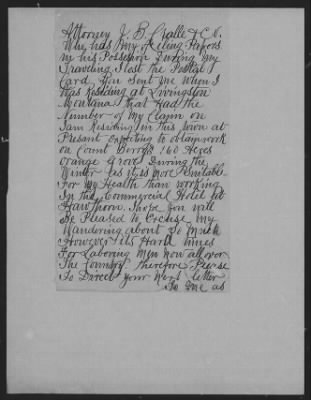 Attorney J. B. Cralle & Co.
Who has My Papers
in his Possession During my
Traveling I lost the Postal
Card you Sent me When I
was Residing at Livingston
Montana that Had the
Number of My Claim on
I am Residing in this town at
Presant Expecting to obtain work
on Count 160 Acres
Orange Grove During the
Winter as it is more Suitable
For My Health than working
In the Commercial Hotel at
Hawthorn I hope you will
Be Pleased to Excuse My
Wandering about So Much
However its Hard times
For Laboring Men Now all over
The Country. therefore Please
To Direct your Next letter
To me as